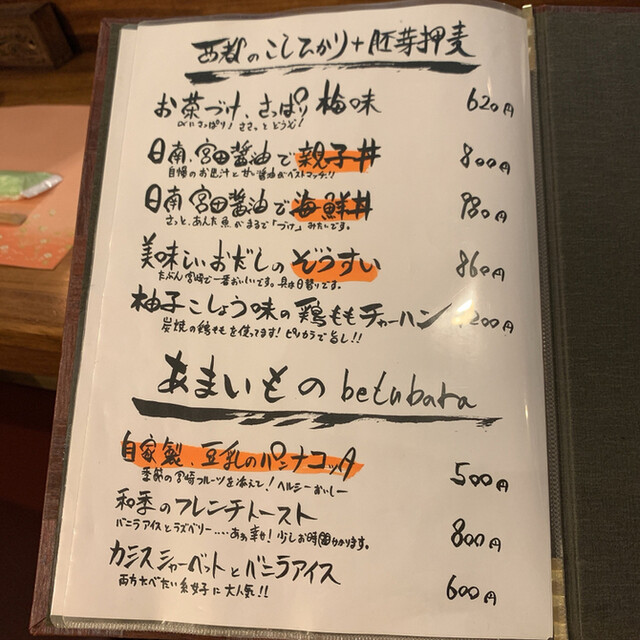 西都のこしひかり+胚芽押麦
お茶づけ、さっぱり梅味 620円
日南、宮田醤油で親子丼 800円
自慢のお出汁と甘い醤油がベストマッチ!!
日南、宮田醤油で海鮮丼 980円
さっと、あんた魚がまるで「づけ」みたいです。
美味しいおだしのぞうすい 860円
たぶん宮崎で一番おいしいです。具は日替りです。
柚子こしょう味の鶏ももチャーハン 200円
炭焼の鶏ももを使ってます!ピリカラで旨し!!
あまいもの betubara
自家製、豆乳のパンナコッタ 500円
季節の宮崎フルーツを添えて!ヘルシーおいしー
和季のフレンチトースト 800円
バニラアイスとラズベリー‥‥ああ幸せ!少しお時間かかります。
カシスシャーベットとバニラアイス 600円
両方たべたい系女子に大人気!!